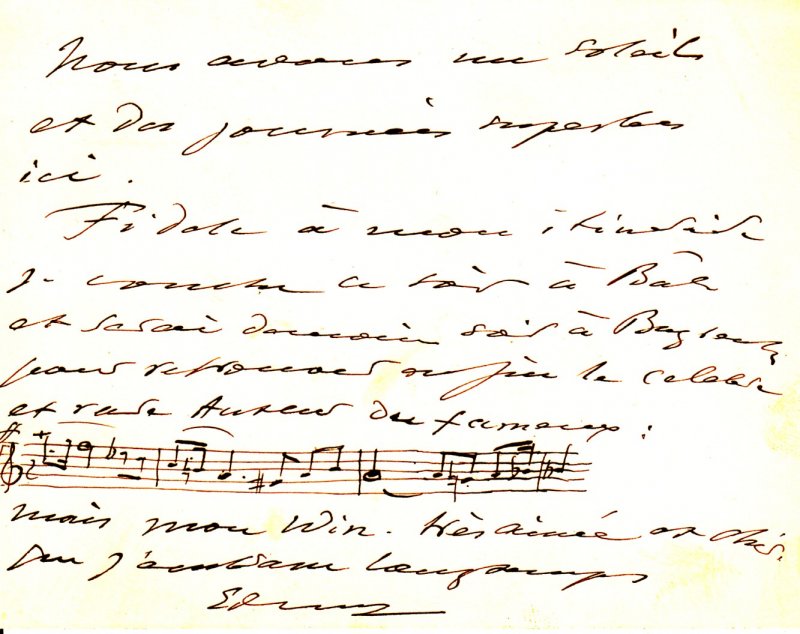 Nous avons un soleil
et des journées superbes
ici.
Fidèle à mon itinéraire
je couche ce soir à Bâle
et serai demain soir à
pour retrouver enfin le célèbre
et rude Auteur du fameux :
ff
mais mon Win. très aimée et
que j'embrasse longtemps